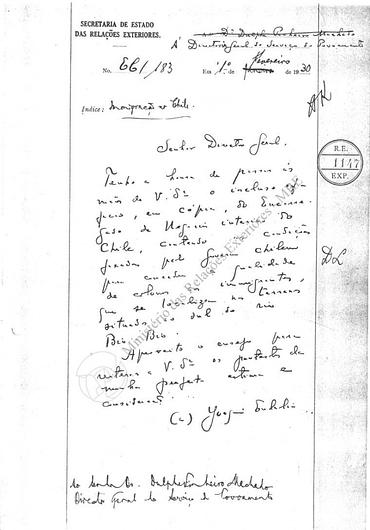 SECRETARIA DE ESTADO
DAS RELAÇÕES EXTERIORES.
Á Directoria Geral do Serviço de Povoamento
Fevereiro
No. EC/183
Em 1º de 1930
Indice: Immigração no Chile.
R.E.
1147
EXP.
Senhor Director Geral.
Tenho a honra de passar ás
mãos de V. Sª o incluso
, em cópia, do Encarre-
gado de Negocios interino do
Chile, contendo as condições
fixadas pelo Governo chileno
para conceder qualidade
de colonos a immigrantes,
que se localizem nos terrenos
situados ao sul do rio
Bio Bio.
DL
Aproveito o ensejo para
reiterar a V. Sª os protestos da
minha perfeita estima e
consideração.
(a)
Ministério das Relações Exteriores - MRE
Ao Senhor Dr. Dulphe Pinheiro Machado
Director Geral do Serviço de Povoamento